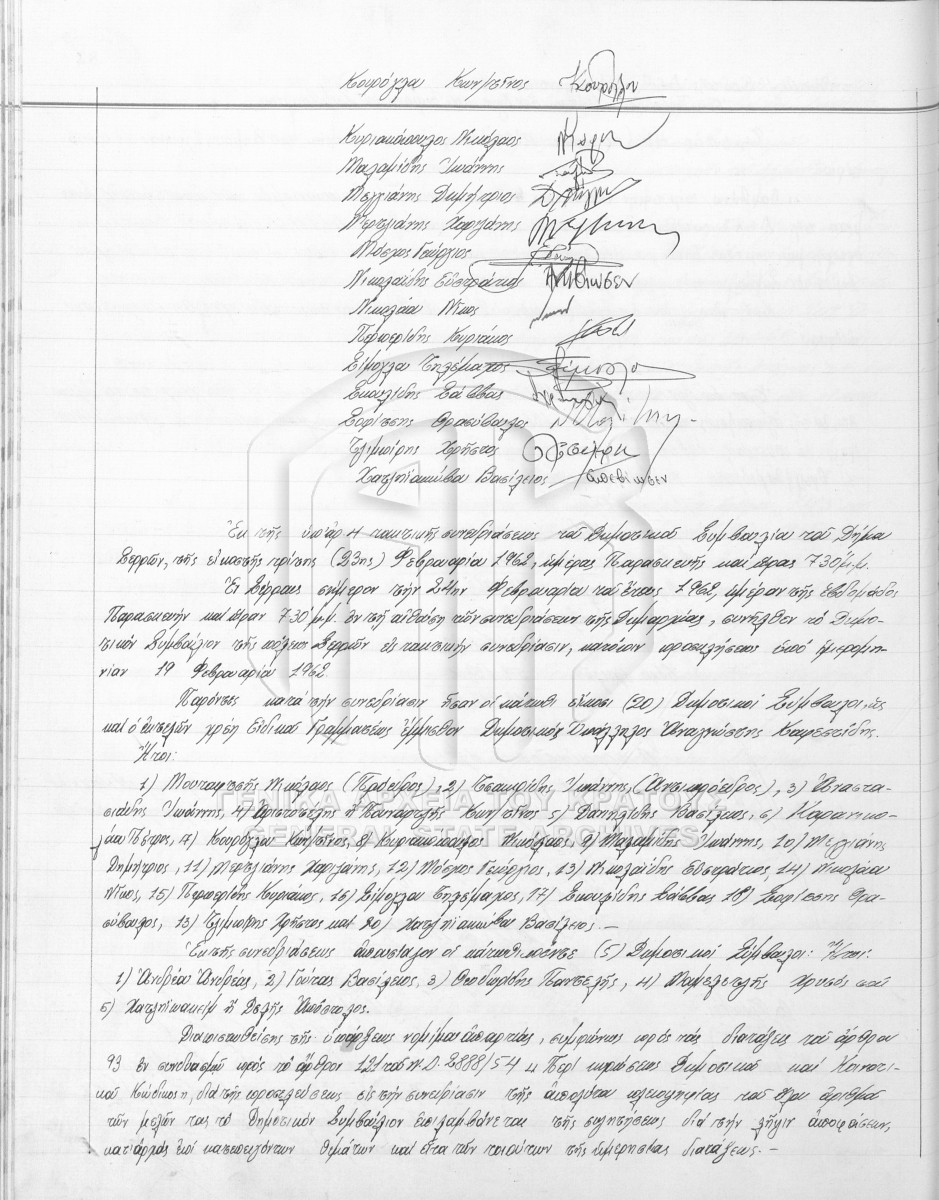 Κουρόγλου Κων/τῖνος Κουρόγλου
Κυριακόπουλος Νικόλαος
Μαλαμίδης Ἰωάννης
Μελλιάνης Δημήτριος
Μερτζιάνης Χαριλάης
Μόσχος Γεώργιος
Νικολαΐδης Εὐστράτιος Ἀπεβίωσεν
Νικολάου Νῖκος
Περπερίδης Κυριάκος
Σίμογλου Τηλέμαχος Σίμογλου
Σκουλίδης Σάββας
Σοφίτσης Θρασύβουλος
Τζιμοίρης Χρῆστος
Χατζηϊακώβου Βασίλειος ἀπεβίωσεν
Ἐκ τῆς ὑπ' ἀρ. 4 τακτικῆς συνεδριάσεως τοῦ Δημοτικοῦ Συμβουλίου τοῦ Δήμου
Σερρῶν, τῆς εἰκοστῆς τρίτης (23ης) Φεβρουαρίου 1962, ἡμέρας Παρασκευῆς καὶ ὥρας 7.30 μ.μ.
Ἐν Σέρραις σήμερον τὴν 24ην Φεβρουαρίου τοῦ ἔτους 1962, ἡμέραν τῆς ἑβδομάδος
Παρασκευὴν καὶ ὥραν 7.30 μ.μ. ἐν τῇ αἰθούσῃ τῶν συνεδριάσεων τῆς Δημαρχίας, συνῆλθεν τὸ Δημο-
τικὸν Συμβούλιον τῆς πόλεως Σερρῶν εἰς τακτικὴν συνεδρίασιν, κατόπιν προσκλήσεως ὑπὸ ἡμερομη-
νίαν 19 Φεβρουαρίου 1962
Παρόντες κατὰ τὴν συνεδρίασιν ἦσαν οἱ κάτωθι εἴκοσι (20) Δημοτικοὶ Σύμβουλοι, ὡς
καὶ ὁ ἐκτελῶν χρέη Εἰδικοῦ Γραμματέως ἔμμισθος Δημοτικὸς Ὑπάλληλος Ἀναγνώστης Καφεστίδης.
Ἤτοι:
1) Μουταφτσῆς Νικόλαος (Πρόεδρος), 2) Τσαπρίδης Ἰωάννης, (Ἀντιπρόεδρος), 3) Ἀναστα-
σιάδης Ἰωάννης, 4) Ἀριστοτέλης ἢ Κων/τῖνος 5) Δανιηλίδης Βασίλειος, 6) Καρανικό-
λας Πέτρος, 7) Κουρόγλου Κων/τῖνος, 8) Κυριακόπουλος Νικόλαος, 9) Μαλαμίδης Ἰωάννης, 10) Μελλιάνης
Δημήτριος, 11) Μερτζιάνης Χαριλάης, 12) Μόσχος Γεώργιος, 13) Νικολαΐδης Εὐστράτιος, 14) Νικολάου
Νῖκος, 15) Περπερίδης Κυριάκος, 16) Σίμογλου Τηλέμαχος, 17) Σκουλίδης Σάββας 18) Σοφίτσης Θρα-
σύβουλος, 19) Τζιμοίρης Χρῆστος καὶ 20) Χατζηϊακώβου Βασίλειος. —
Ἐκ τῆς συνεδριάσεως ἀπουσίαζον οἱ κάτωθι πέντε (5) Δημοτικοὶ Σύμβουλοι: Ἤτοι:
1) Ἀνδρέου Ἀνδρέας, 2) Γούτας Βασίλειος, 3) Θεοδωρίδης Παντελῆς, 4) Μαμελετζῆς Χρυσὸς καὶ
5) Χατζηϊωακεὶμ ἢ Δελῆς Ἀπόστολος.
Διαπιστωθείσης τῆς ὑπάρξεως νομίμου ἀπαρτίας, συμφώνως πρὸς τὰς διατάξεις τοῦ ἄρθρου
93 ἐν συνδυασμῷ πρὸς τὸ ἄρθρον 121 τοῦ Ν.Δ. 2888/54 „ Περὶ κυρώσεως Δημοτικοῦ καὶ Κοινοτι-
κοῦ Κώδικος", διὰ τῆς προσελεύσεως εἰς τὴν συνεδρίασιν τῆς ἀπολύτου πλειοψηφίας τοῦ ὅλου ἀριθμοῦ
τῶν μελῶν του τὸ Δημοτικὸν Συμβούλιον ἐπιλαμβάνεται τῆς συζητήσεως διὰ τὴν λῆψιν ἀποφάσεως
κατ' ἀρχὰς ἐπὶ κατεπειγόντων θεμάτων καὶ εἶτα τῶν τοιούτων τῆς ἡμερησίας διατάξεως. —
ΓΕΝΙΚΑ ΑΡΧΕΙΑ ΤΟΥ ΚΡΑΤΟΥΣ
GENERAL STATE ARCHIVES